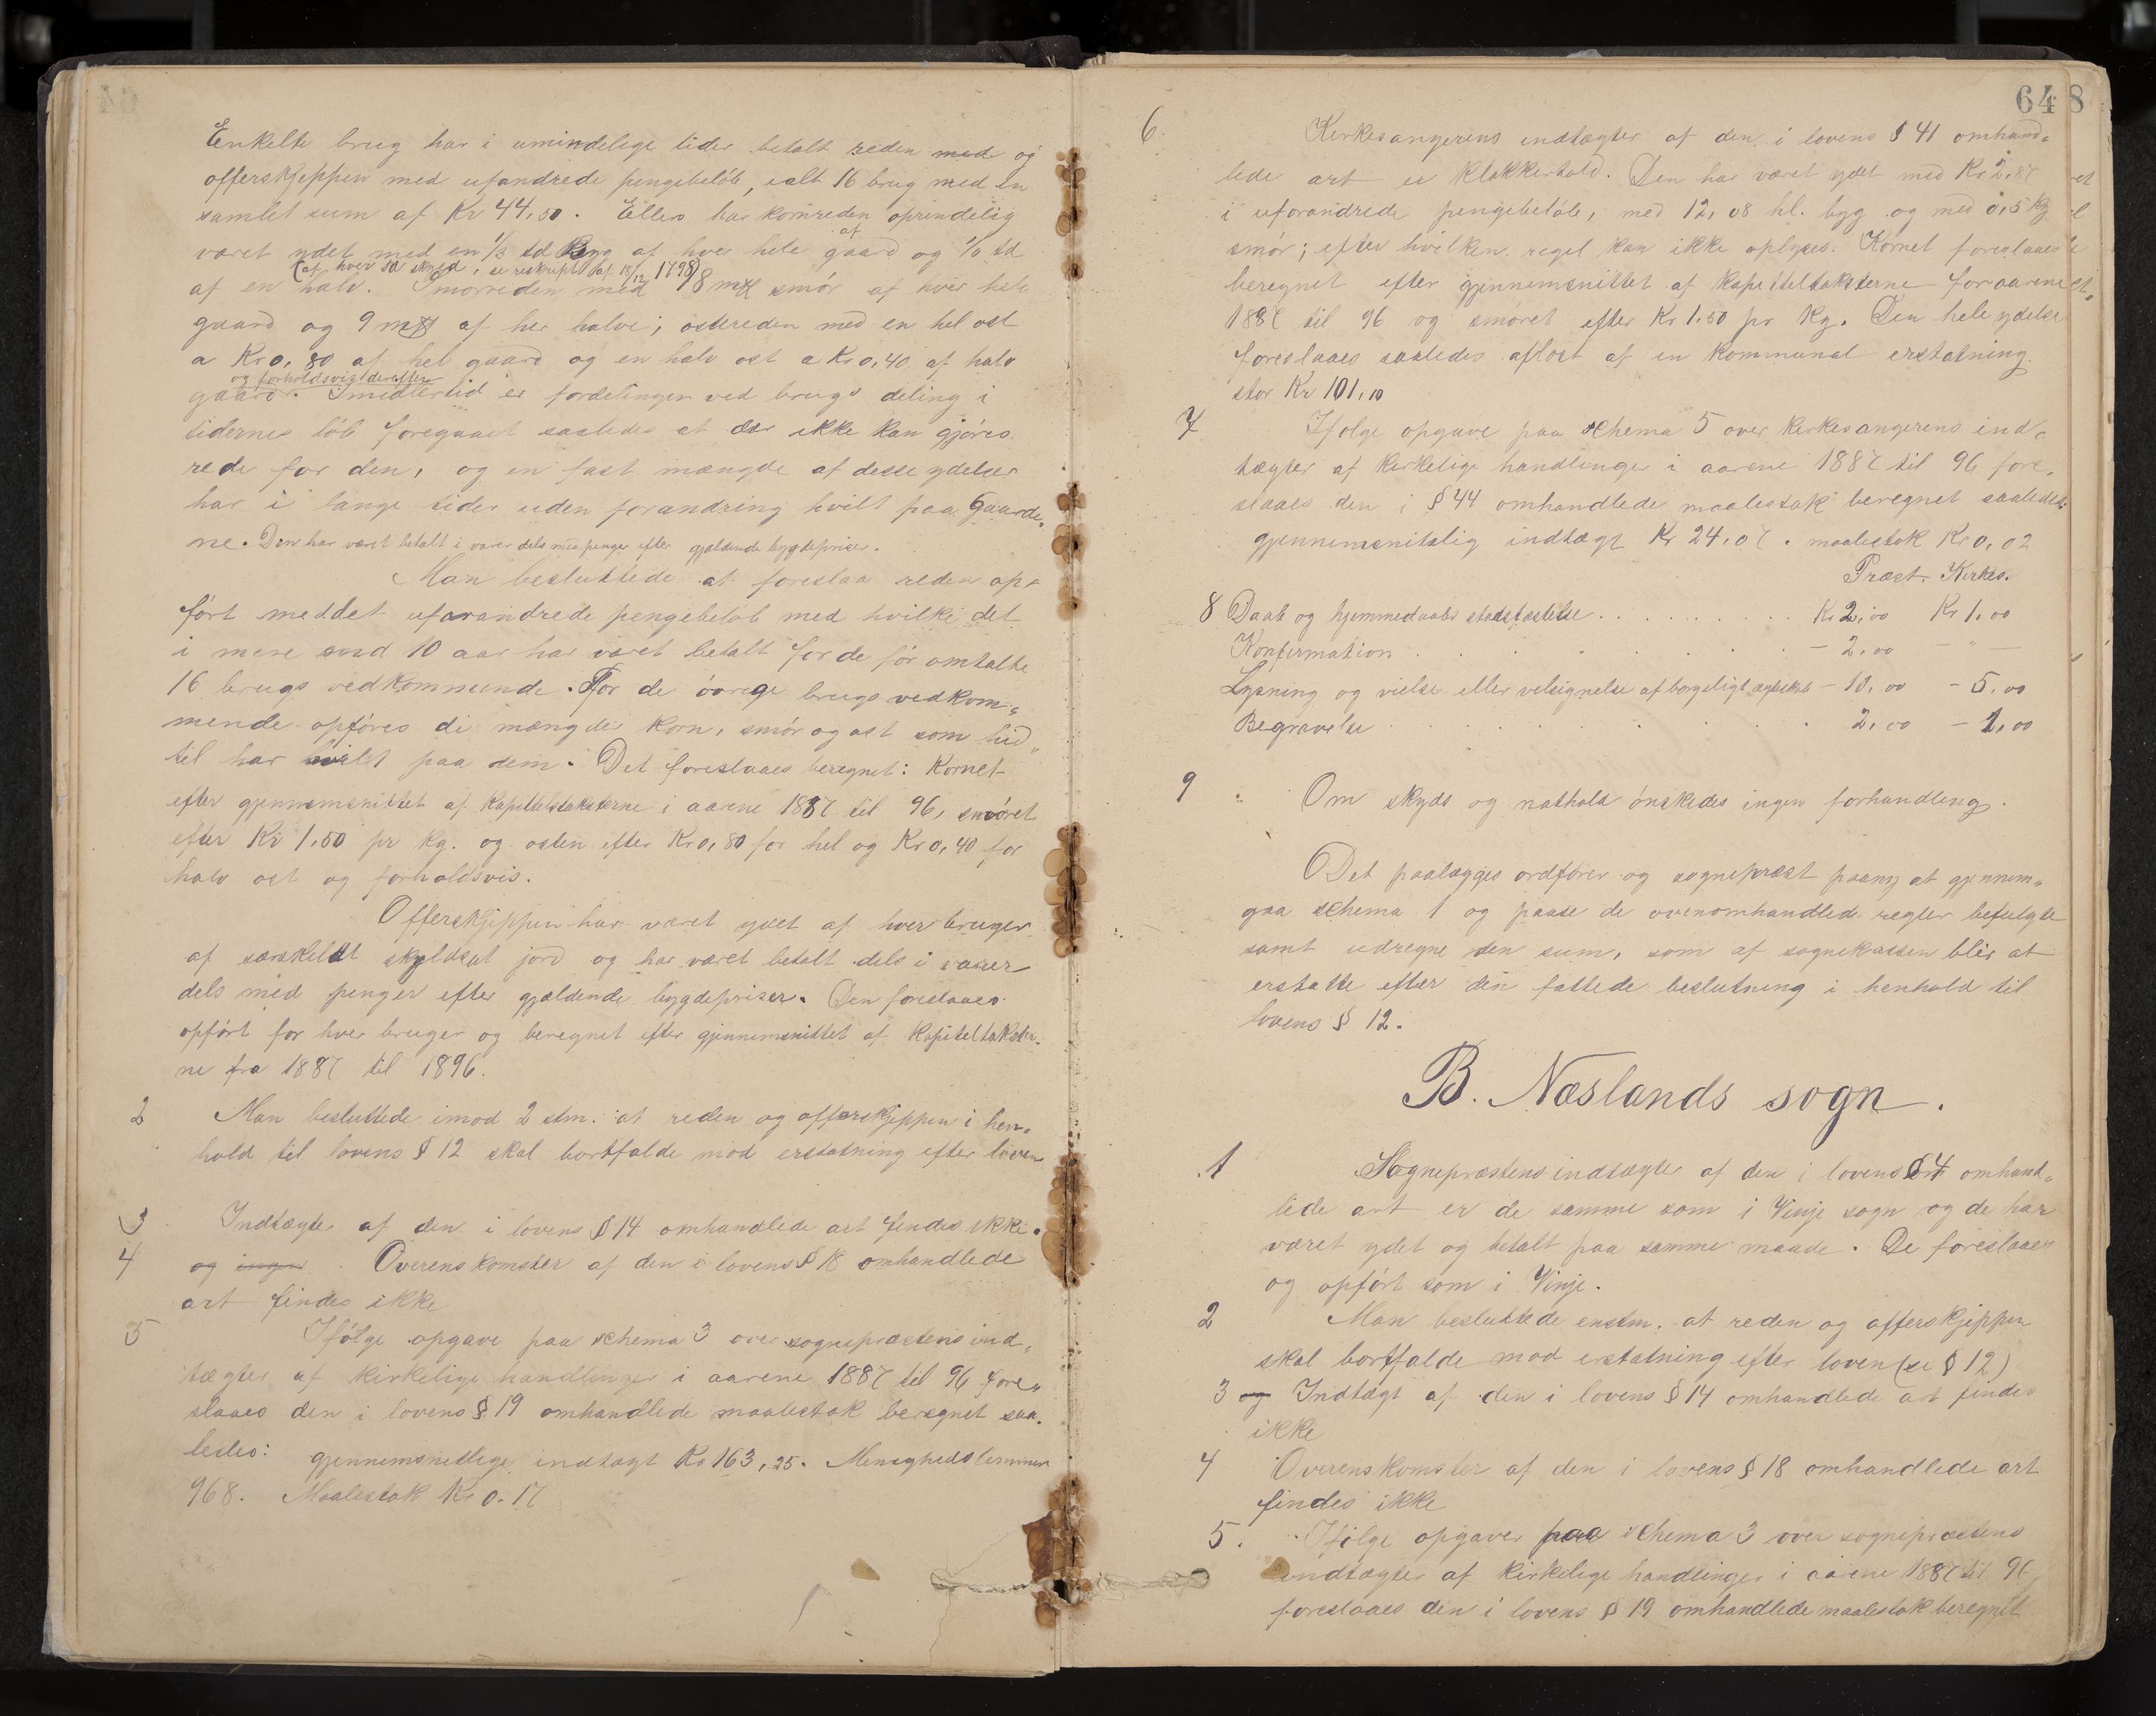 Enkelte brug har i umindelige tider betalt reden med og
offerskjeppen med uforandrede pengebeløb, ialt 16 brug med en
samlet sum af Kr 44,50. Ellers har kornreden oprindelig
været ydet med en 1/3 td Byg af hver hele gaard og 1/6 td
af
(af hver td skyld, se reskript af 18/12 1798)
af en halv. Smørreden med 18 mrk smør af hver hele
gaard og 9 mrk af hver halve; ostereden med en hel ost
a Kr 0,80 af hel gaard og en halv ost a Kr 0,40 af halv
og forholdsvigt derefter
gaard. Imidlertid er fordelingen ved brugs deling i
tidernes løb foregaaet saaledes at der ikke kan gjøres
rede for den, og en fast mængde af desse ydelser
har i lange tider uden forandring hvilt paa Gaarde-
ne. Den har været betalt i varer dels med penger efter gjældende bygdepriser.
Man besluttede at foreslaa reden op-
ført med det uforandrede pengebeløb med hvilke det
i mere end 10 aar har været betalt for de før omtalte
16 brugs vedkommende. For de øvrige brugs vedkom-
mende opføres de mængder korn, smør og ost som hid-
til har hvilet paa dem. Det foreslaaes beregnet: Kornet
efter gjennemsnittet af Kapitelstaksterne i aarene 1887 til 96, smøret
efter Kr 1,50 pr kg. og osten efter Kr 0,80 for hel og Kr 0,40 for
halv ost og forholdsvis.
Offerskjeppen har været ydet af hver bruger
af særskildt skyldsat jord og har været betalt dels i varer
dels med penger efter gjældende bygdepriser. Den foreslaaes
opført for hver bruger og beregnet efter gjennemsnittet af Kapiteltakster-
ne fra 1887 til 1896.
2 Man besluttede imod 2 stm. at reden og offerskjeppen i hen-
hold til lovens § 12 skal bortfalde mod erstatning efter loven
3 Indtægter af den i lovens § 14 omhandlede art findes ikke.
4 og ingen Overenskomster af den i lovens § 18 omhandlede
art findes ikke
5 Ifølge opgave paa schema 3 over sogneprestens ind-
tægter af kirkelige handlinger i aarene 1887 til 96 fore-
slaaes den i lovens § 19 omhandlede maalestok beregnet saa-
ledes: gjennemsnitlige indtægt Kr 163,25. Menighedslemmer
968. Maalestok Kr 0.17
648
6. Kirkesangerens indtægter af den i lovens § 41 omhand-
lede art er klokkertold. Den har været ydet med Kr 2,87
i uforandrede pengebeløb, med 12,08 hl. byg og med 0,5 kg
smør; efter hvilken regel kan ikke oplyses. Kornet foreslaaes
beregnet efter gjennemsnittet af Kapiteltaksterne for aarene
1887 til 96 og smøret efter Kr 1.50 pr Kg. Den hele ydelse
foreslaaes saaledes afløst af en kommunal erstatning
stor Kr 101,10
7 Ifølge opgave paa schema 5 over kirkesangerens ind-
tægter af kirkelige handlinger i aarene 1887 til 96 fore-
slaaes den i § 44 omhandlede maalestok beregnet saaledes:
gjennemsnitslig indtægt Kr 24,07. maalestok Kr 0,02
Præst. Kirkes.
8 Daab og hjemmedaabs stadfæstelse . . . . . . . . . Kr 2,00 Kr 1.00
Konfirmation . . . . . . . - 2.00 - " -
Lysning og vielse eller velsignelse af borgeligt ægteskab - 10,00 - 5,00
Begravelse . . . . . . . 2,00 - 1,00
9 Om skyds og nathold ønskedes ingen forhandling.
Det paalægges ordfører og sogneprest paany at gjennem-
gaa schema 1 og paase de ovenomhandlede regler befulgte
samt udregne den sum, som af sognekassen blir at
erstatte efter den fattede beslutning i henhold til
lovens § 12.
B. Næslands sogn.
1 Sogneprestens indtægter af den i lovens § 4 omhand-
lede art er de samme som i Vinje sogn og de har
været ydet og betalt paa samme maade. De foreslaaes
og opført som i Vinje.
2 Man besluttede enstm. at reden og offerskjeppen
skal bortfalde mod erstatning efter loven (se § 12)
3 og Indtægt af den i lovens § 14 omhandlede art findes
ikke
4 Overenskomster af den i lovens § 18 omhandlede art
findes ikke
5. Ifølge opgaver paa schema 3 over sogneprestens
indtægter af kirkelige handlinger i aarene 1887 til 96
foreslaaes den i lovens § 19 omhandlede maalestok beregnet